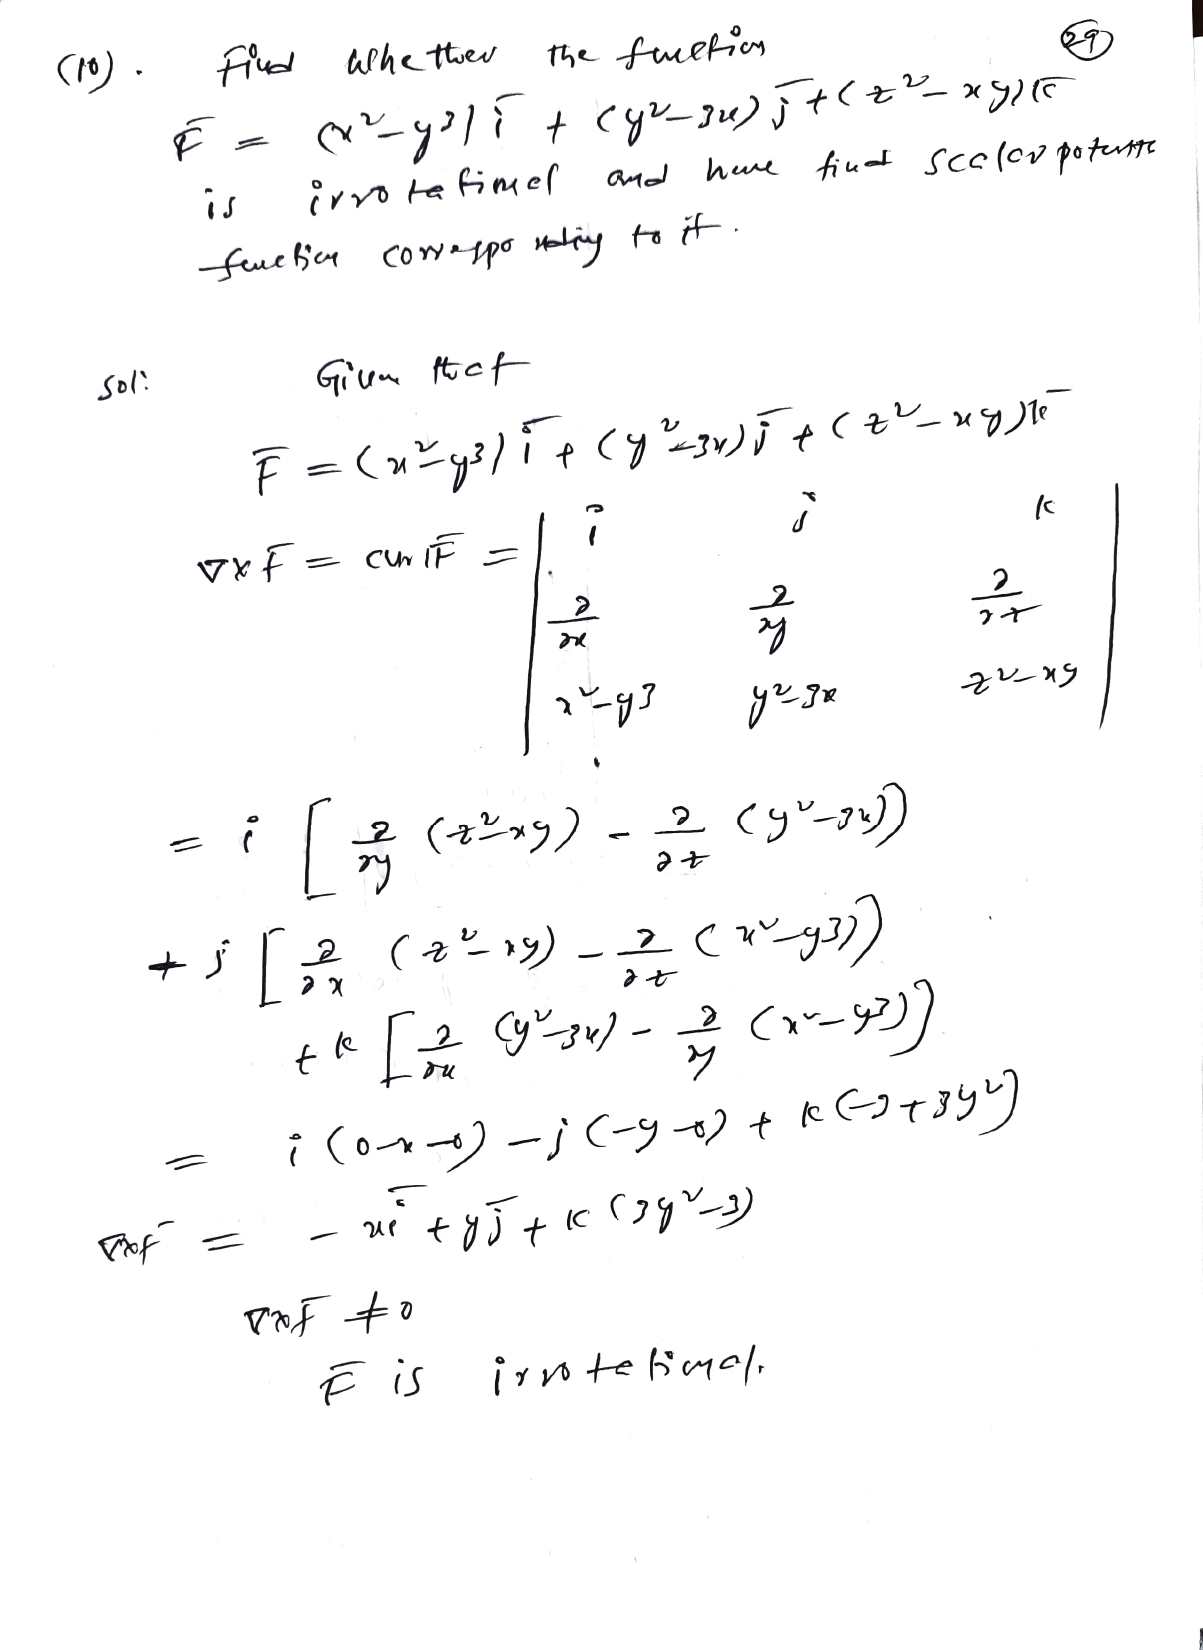 (29)
(10). Find whether the function
F̄ = (x²-y3) ī + (y²-3x) j̄ + (z²-xy) k̄
is irrotational and have find scalar potential
function corresponding to it.
Sol: Given that
F̄ = (x²-y3) ī + (y²-3x) j̄ + (z²-xy) k̄
∇×F̄ = curl F̄ = | i j k |
| ∂/∂x ∂/∂y ∂/∂z |
| x²-y3 y²-3x z²-xy |
= i [ ∂/∂y (z²-xy) - ∂/∂z (y²-3x))
+ j [ ∂/∂x (z²-xy) - ∂/∂z (x²-y3))
+ k [ ∂/∂x (y²-3x) - ∂/∂y (x²-y3)]
= i (0-x-0) - j (-y-0) + k (-3+3y²)
∇×F̄ = - xī + yj̄ + k (3y²-3)
∇×F̄ ≠ 0
F̄ is irrotational.